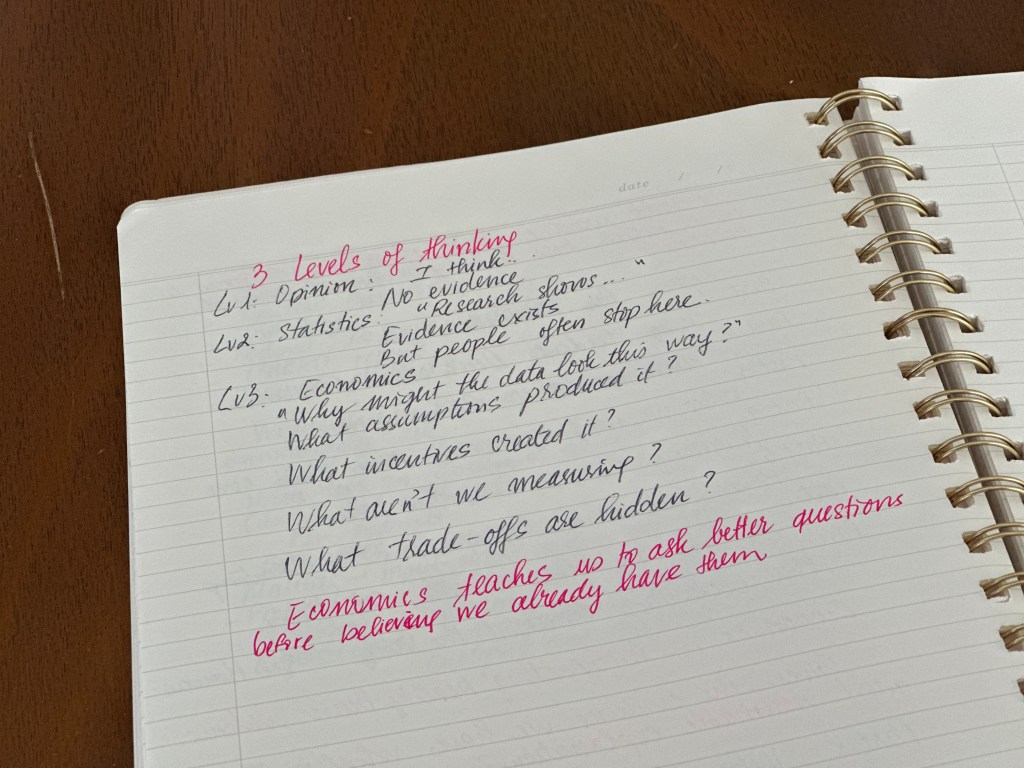 date / /
3 Levels of thinking
Lv1: Opinion: I think...
No evidence
Lv2: Statistics: "Research shows..."
Evidence exists
But people often stop here.
Lv3: Economics
"Why might the data look this way?"
What assumptions produced it?
What incentives created it?
What aren't we measuring?
What trade-offs are hidden?
Economics teaches us to ask better questions
before believing we already have them